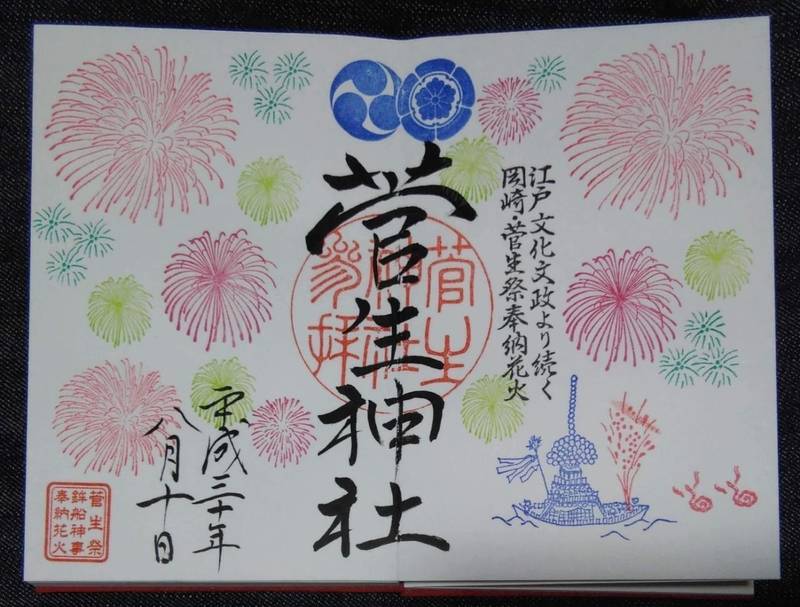 江戸文化文政より続く
岡崎・菅生祭奉納花火
菅生神社
菅生
神社
参拝
平成三十年
八月十日
菅生祭
鉾船神事
奉納花火